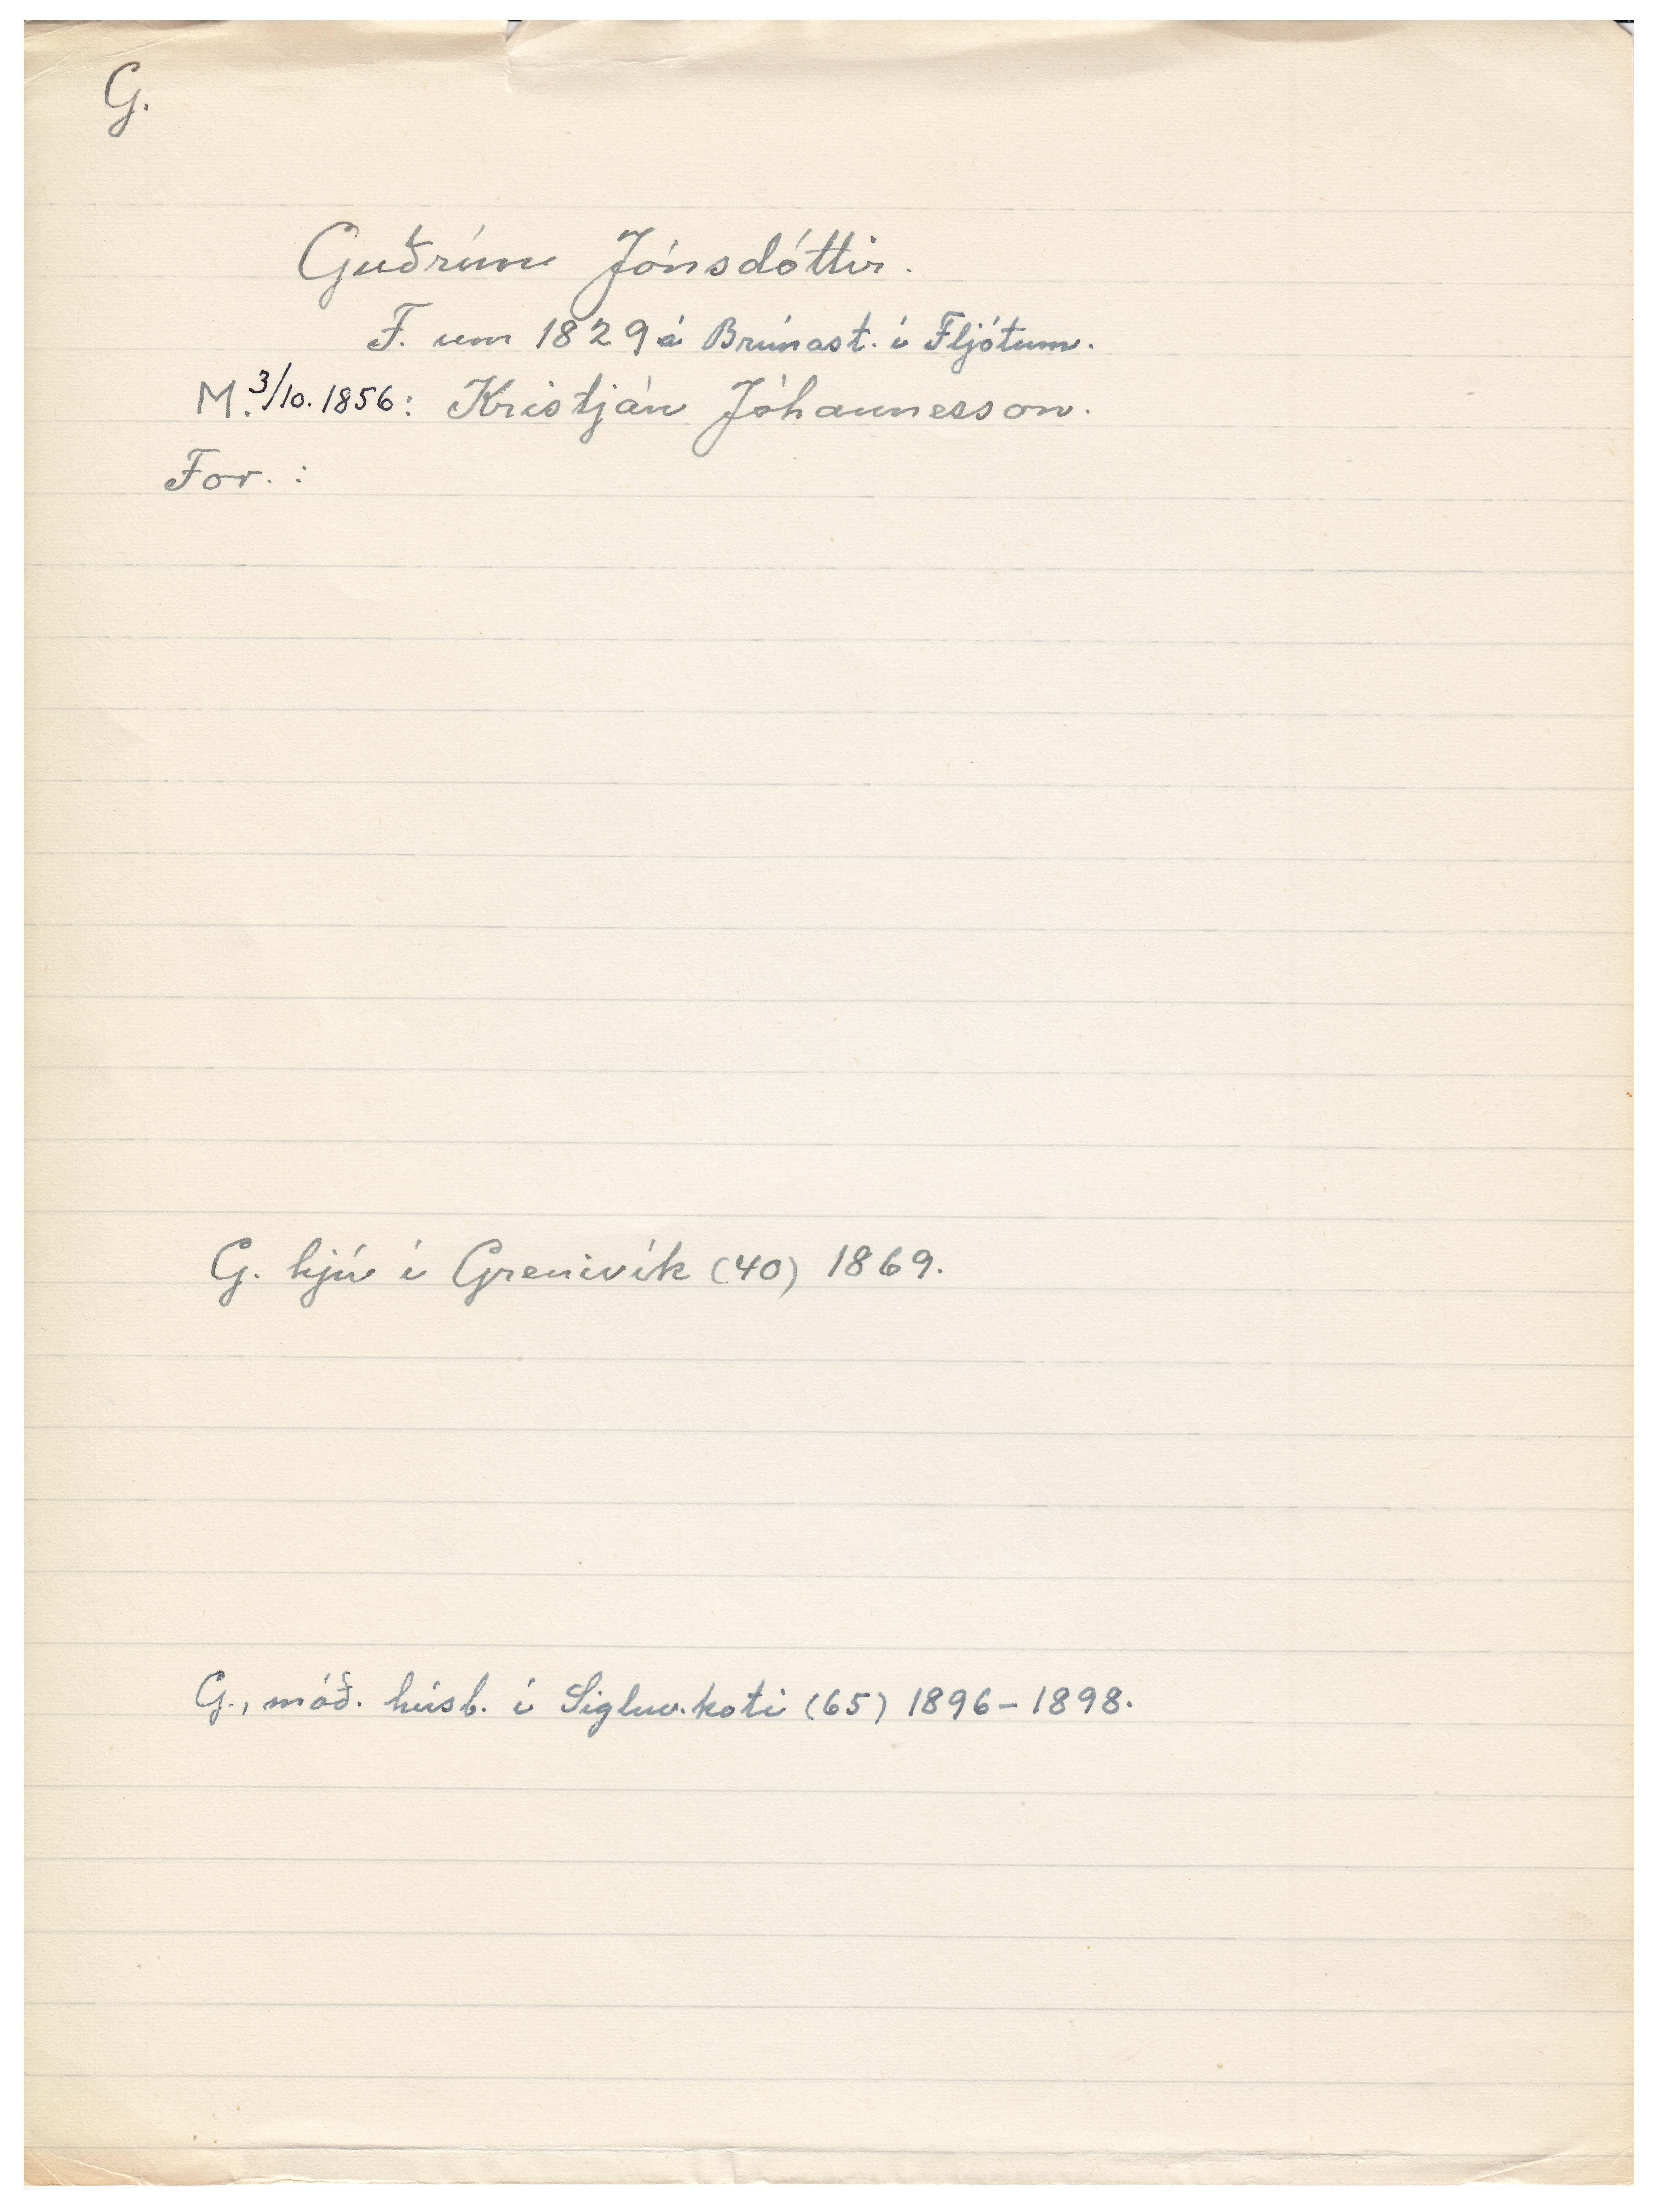 G.
Guðrún Jónsdóttir.
F. um 1829 á Brúnast. í Fljótum.
M. 3/10. 1856: Kristján Jóhannesson.
For. :
G. hjú í Grenivík (40) 1869.
G., móð. húsb. í Sigluv.koti (65) 1896-1898.